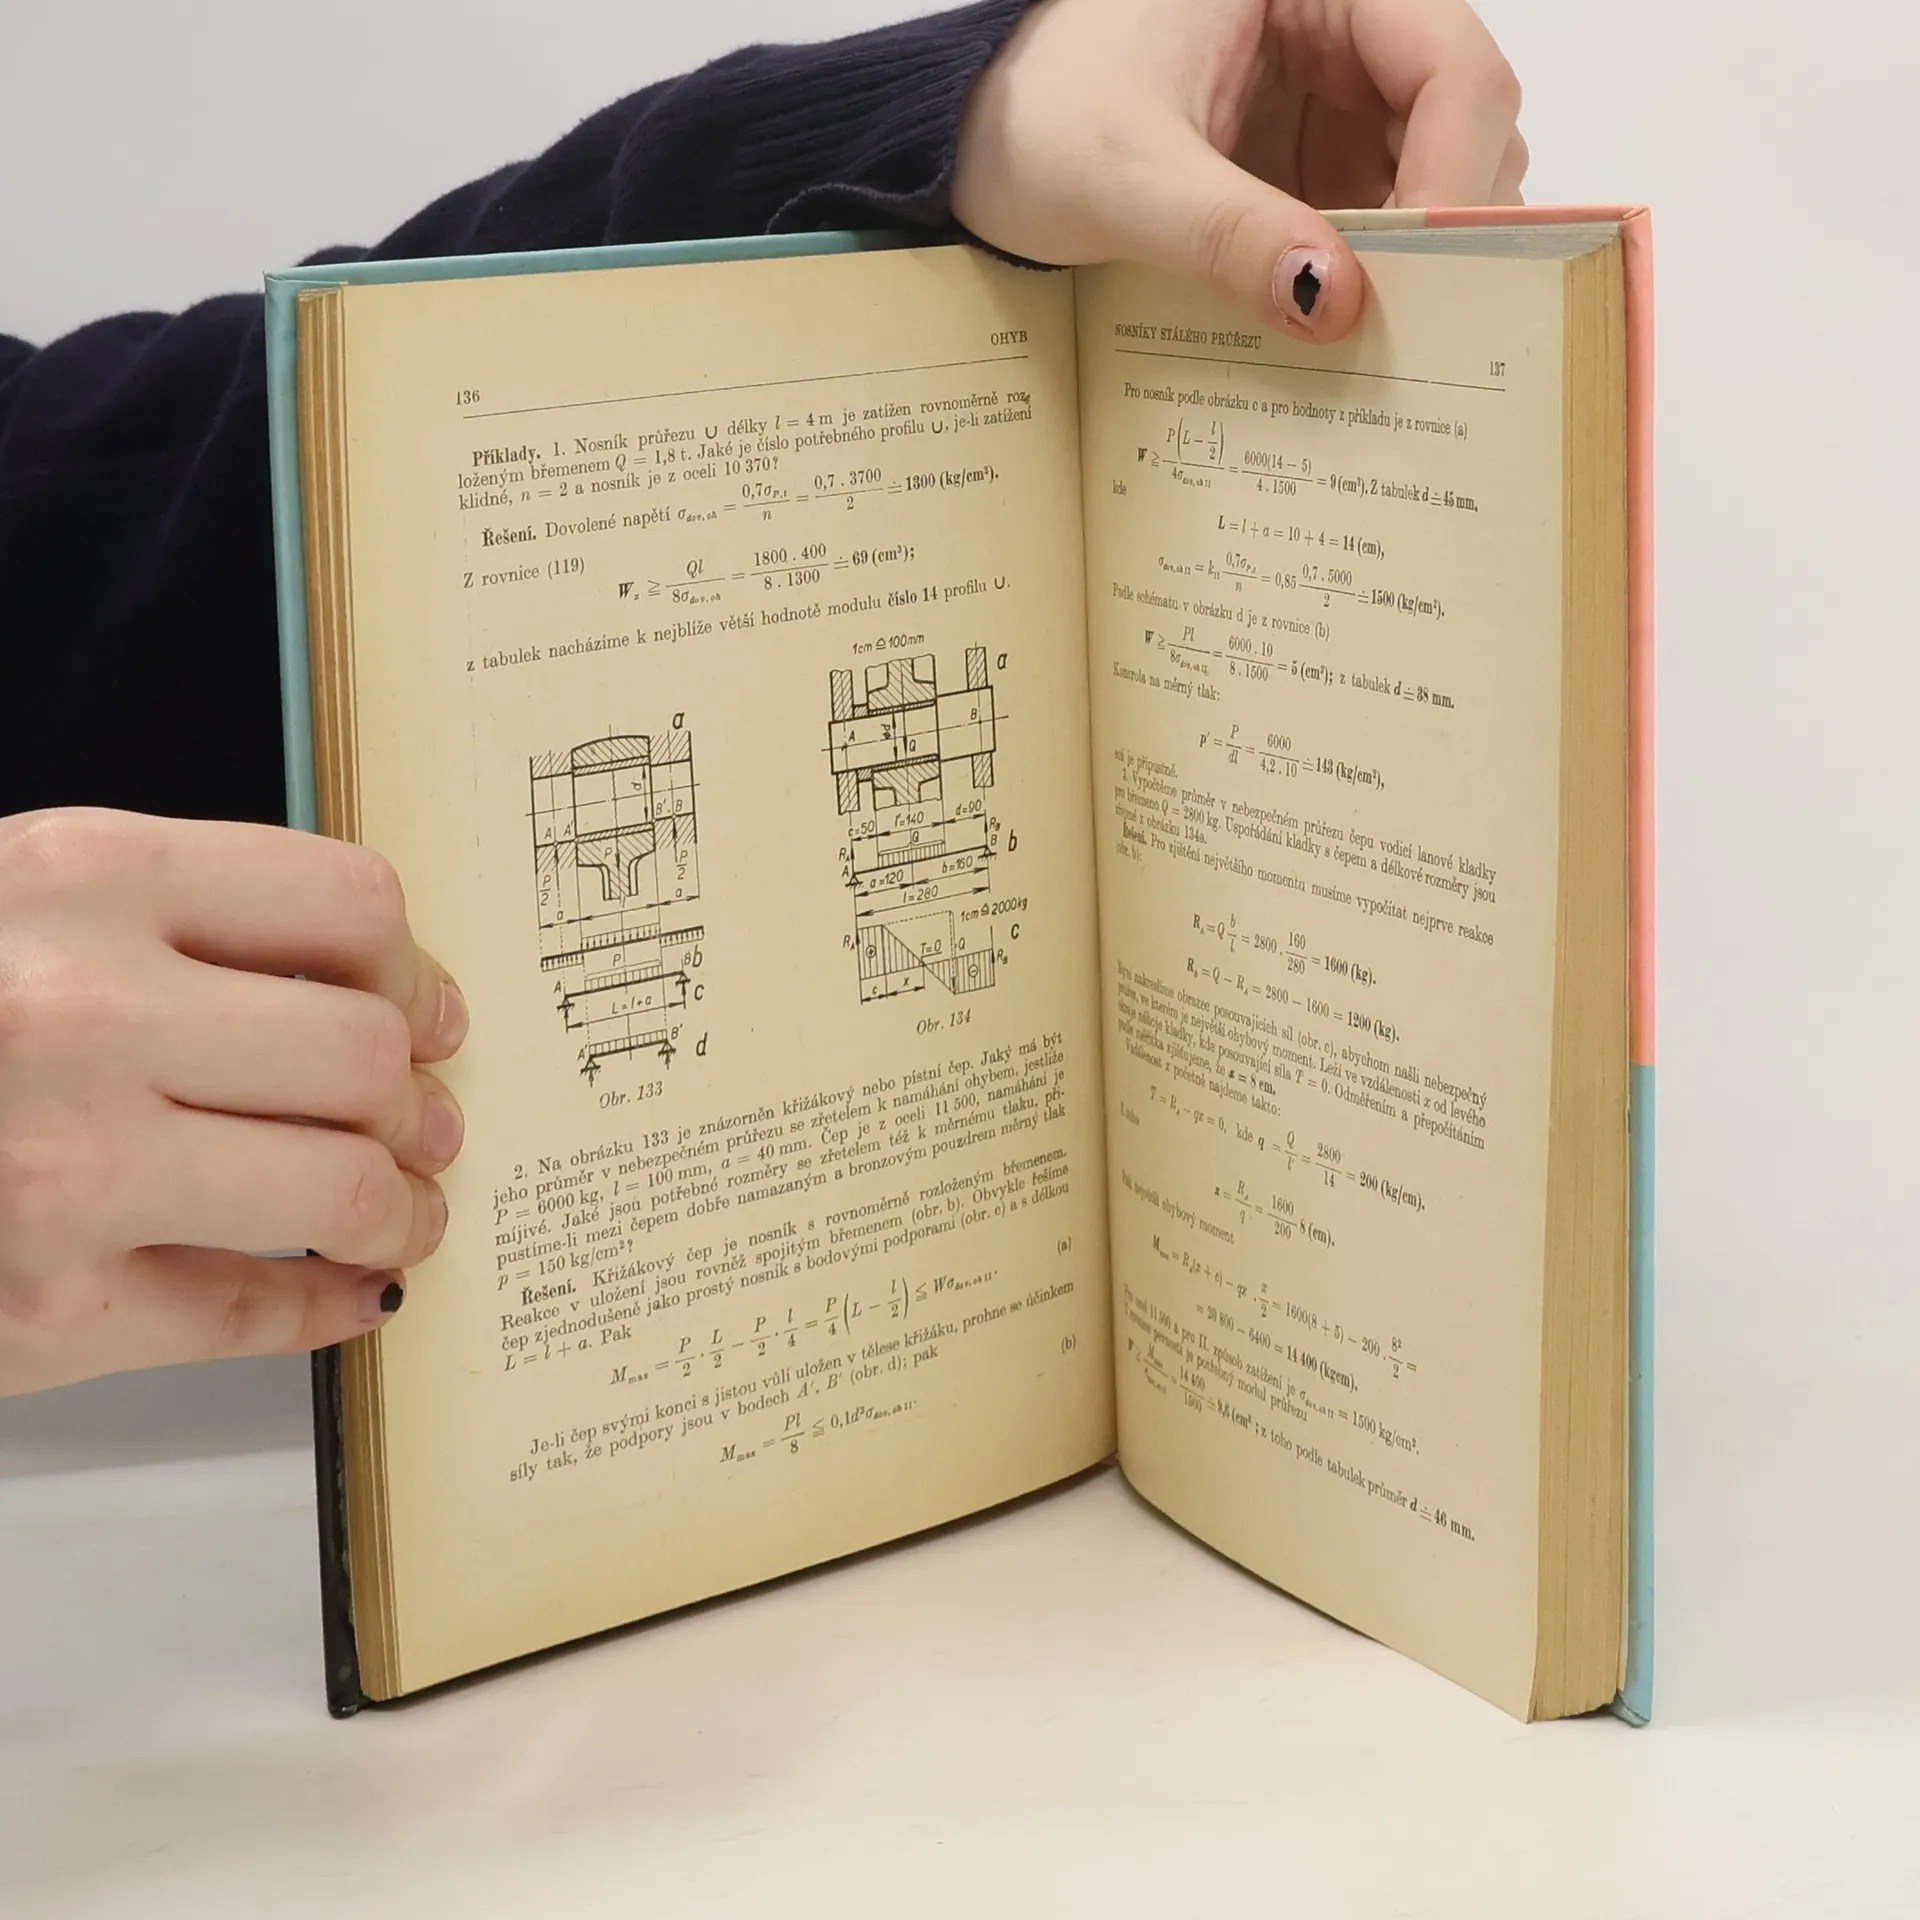 136
OHYB
Příklady. 1. Nosník průřezu U délky l = 4 m je zatížen rovnoměrně roz-
loženým břemenem Q = 1,8 t. Jaké je číslo potřebného profilu U, je-li zatížení
klidné, n = 2 a nosník je z oceli 10 370?
Řešení. Dovolené napětí σdov, oh = 0,7σP,t / n = 0,7 . 3700 / 2 ≐ 1300 (kg/cm²).
Z rovnice (119)
Wz ≧ Ql / 8σdov, oh = 1800 . 400 / 8 . 1300 ≐ 69 (cm³);
z tabulek nacházíme k nejblíže větší hodnotě modulu číslo 14 profilu U.
a
d
A A' B' B
P
P/2 P/2
a a
P
A B b
L = l+a c
A' B' d
Obr. 133
1cm ≙ 100mm
a
A B
Q
c=50 l'=140 d=90
Q
RA RB
A B b
a=120 b=160
l=280
1cm ≙ 2000kg
c
RA T=0 Q RB
c x
Obr. 134
2. Na obrázku 133 je znázorněn křižákový nebo pístní čep. Jaký má být
jeho průměr v nebezpečném průřezu se zřetelem k namáhání ohybem, jestliže
P = 6000 kg, l = 100 mm, a = 40 mm. Čep je z oceli 11 500, namáhání je
míjivé. Jaké jsou potřebné rozměry se zřetelem též k měrnému tlaku, při-
pustíme-li mezi čepem dobře namazaným a bronzovým pouzdrem měrný tlak
p = 150 kg/cm²?
Řešení. Křižákový čep je nosník s rovnoměrně rozloženým břemenem.
Reakce v uložení jsou rovněž spojitým břemenem (obr. b). Obvykle řešíme
čep zjednodušeně jako prostý nosník s bodovými podporami (obr. c) a s délkou
L = l + a. Pak
Mmax = P/2 . L/2 − P/2 . l/4 = P/4 (L − l/2) ≦ Wσdov, oh II. (a)
Je-li čep svými konci s jistou vůlí uložen v tělese křižáku, prohne se účinkem
síly tak, že podpory jsou v bodech A', B' (obr. d); pak
Mmax = Pl/8 ≦ 0,1d³σdov, oh II. (b)
NOSNÍKY STÁLÉHO PRŮŘEZU
137
Pro nosník podle obrázku c a pro hodnoty z příkladu je z rovnice (a)
W ≧ P(L − l/2) / 4σdov, oh II = 6000(14 − 5) / 4 . 1500 = 9 (cm³). Z tabulek d ≐ 45 mm,
kde
L = l + a = 10 + 4 = 14 (cm),
σdov, oh II = kII 0,7σP,t / n = 0,85 0,7 . 5000 / 2 ≐ 1500 (kg/cm²).
Podle schématu v obrázku d je z rovnice (b)
W ≧ Pl / 8σdov, oh II = 6000 . 10 / 8 . 1500 = 5 (cm³); z tabulek d ≐ 38 mm.
Kontrola na měrný tlak:
p' = P / dl = 6000 / 4,2 . 10 ≐ 143 (kg/cm²),
což je přípustné.
3. Vypočtěme průměr v nebezpečném průřezu čepu vodicí lanové kladky
pro břemeno Q = 2800 kg. Uspořádání kladky s čepem a délkové rozměry jsou
zřejmé z obrázku 134a.
Řešení. Pro zjištění největšího momentu musíme vypočítat nejprve reakce
(obr. b):
RA = Q b/l = 2800 . 160/280 = 1600 (kg).
RB = Q − RA = 2800 − 1600 = 1200 (kg).
Nyní nakreslíme obrazec posouvajících sil (obr. c), abychom našli nebezpečný
průřez, ve kterém je největší ohybový moment. Leží ve vzdálenosti x od levého
okraje náboje kladky, kde posouvající síla T = 0. Odměřením a přepočítáním
podle měřítka zjišťujeme, že x = 8 cm.
Vzdálenost x početně najdeme takto:
T = RA − qx = 0, kde q = Q/l' = 2800/14 = 200 (kg/cm).
Z toho
x = RA/q = 1600/200 8 (cm).
Pak největší ohybový moment
Mmax = RA(x + c) − qx . x/2 = 1600(8 + 5) − 200 . 8²/2 =
= 20 800 − 6400 = 14 400 (kgcm).
Pro ocel 11 500 a pro II. způsob zatížení je σdov, oh II = 1500 kg/cm².
Z rovnice pevnosti je potřebný modul průřezu
W ≧ Mmax / σdov, oh II = 14 400 / 1500 ≐ 9,6 (cm³; z toho podle tabulek průměr d ≐ 46 mm.